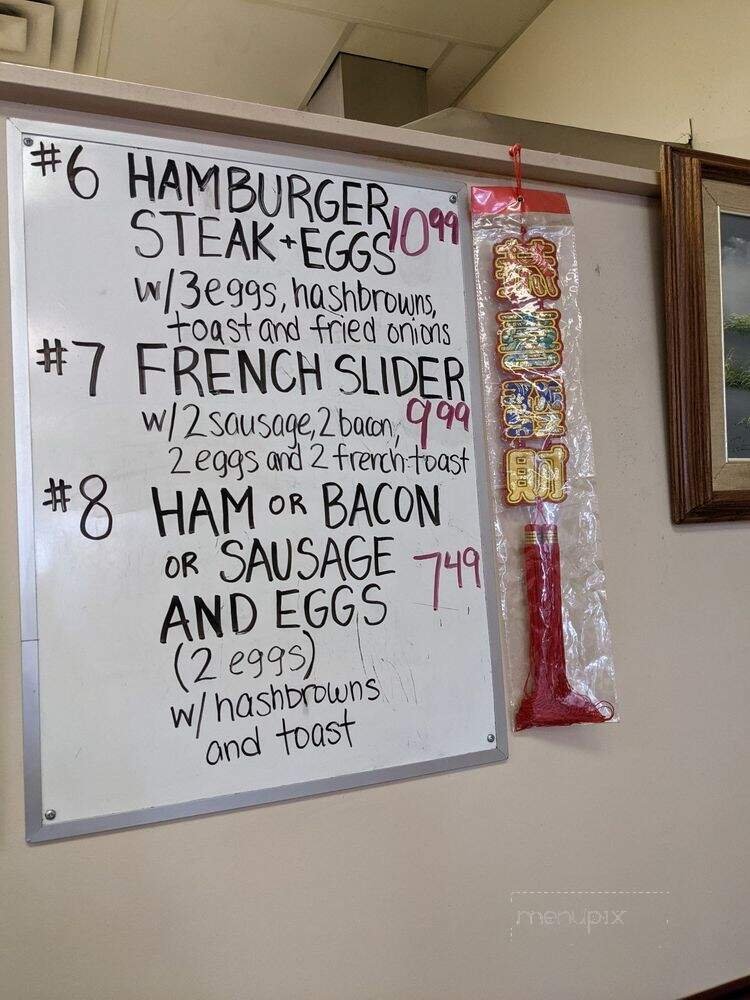 #6 HAMBURGER
STEAK + EGGS 10.99
w/3 eggs, hashbrowns,
toast and fried onions
#7 FRENCH SLIDER
w/2 sausage, 2 bacon, 9.99
2 eggs and 2 french toast
#8 HAM OR BACON
OR SAUSAGE 7.49
AND EGGS
(2 eggs)
w/hashbrowns
and toast
財
menupix